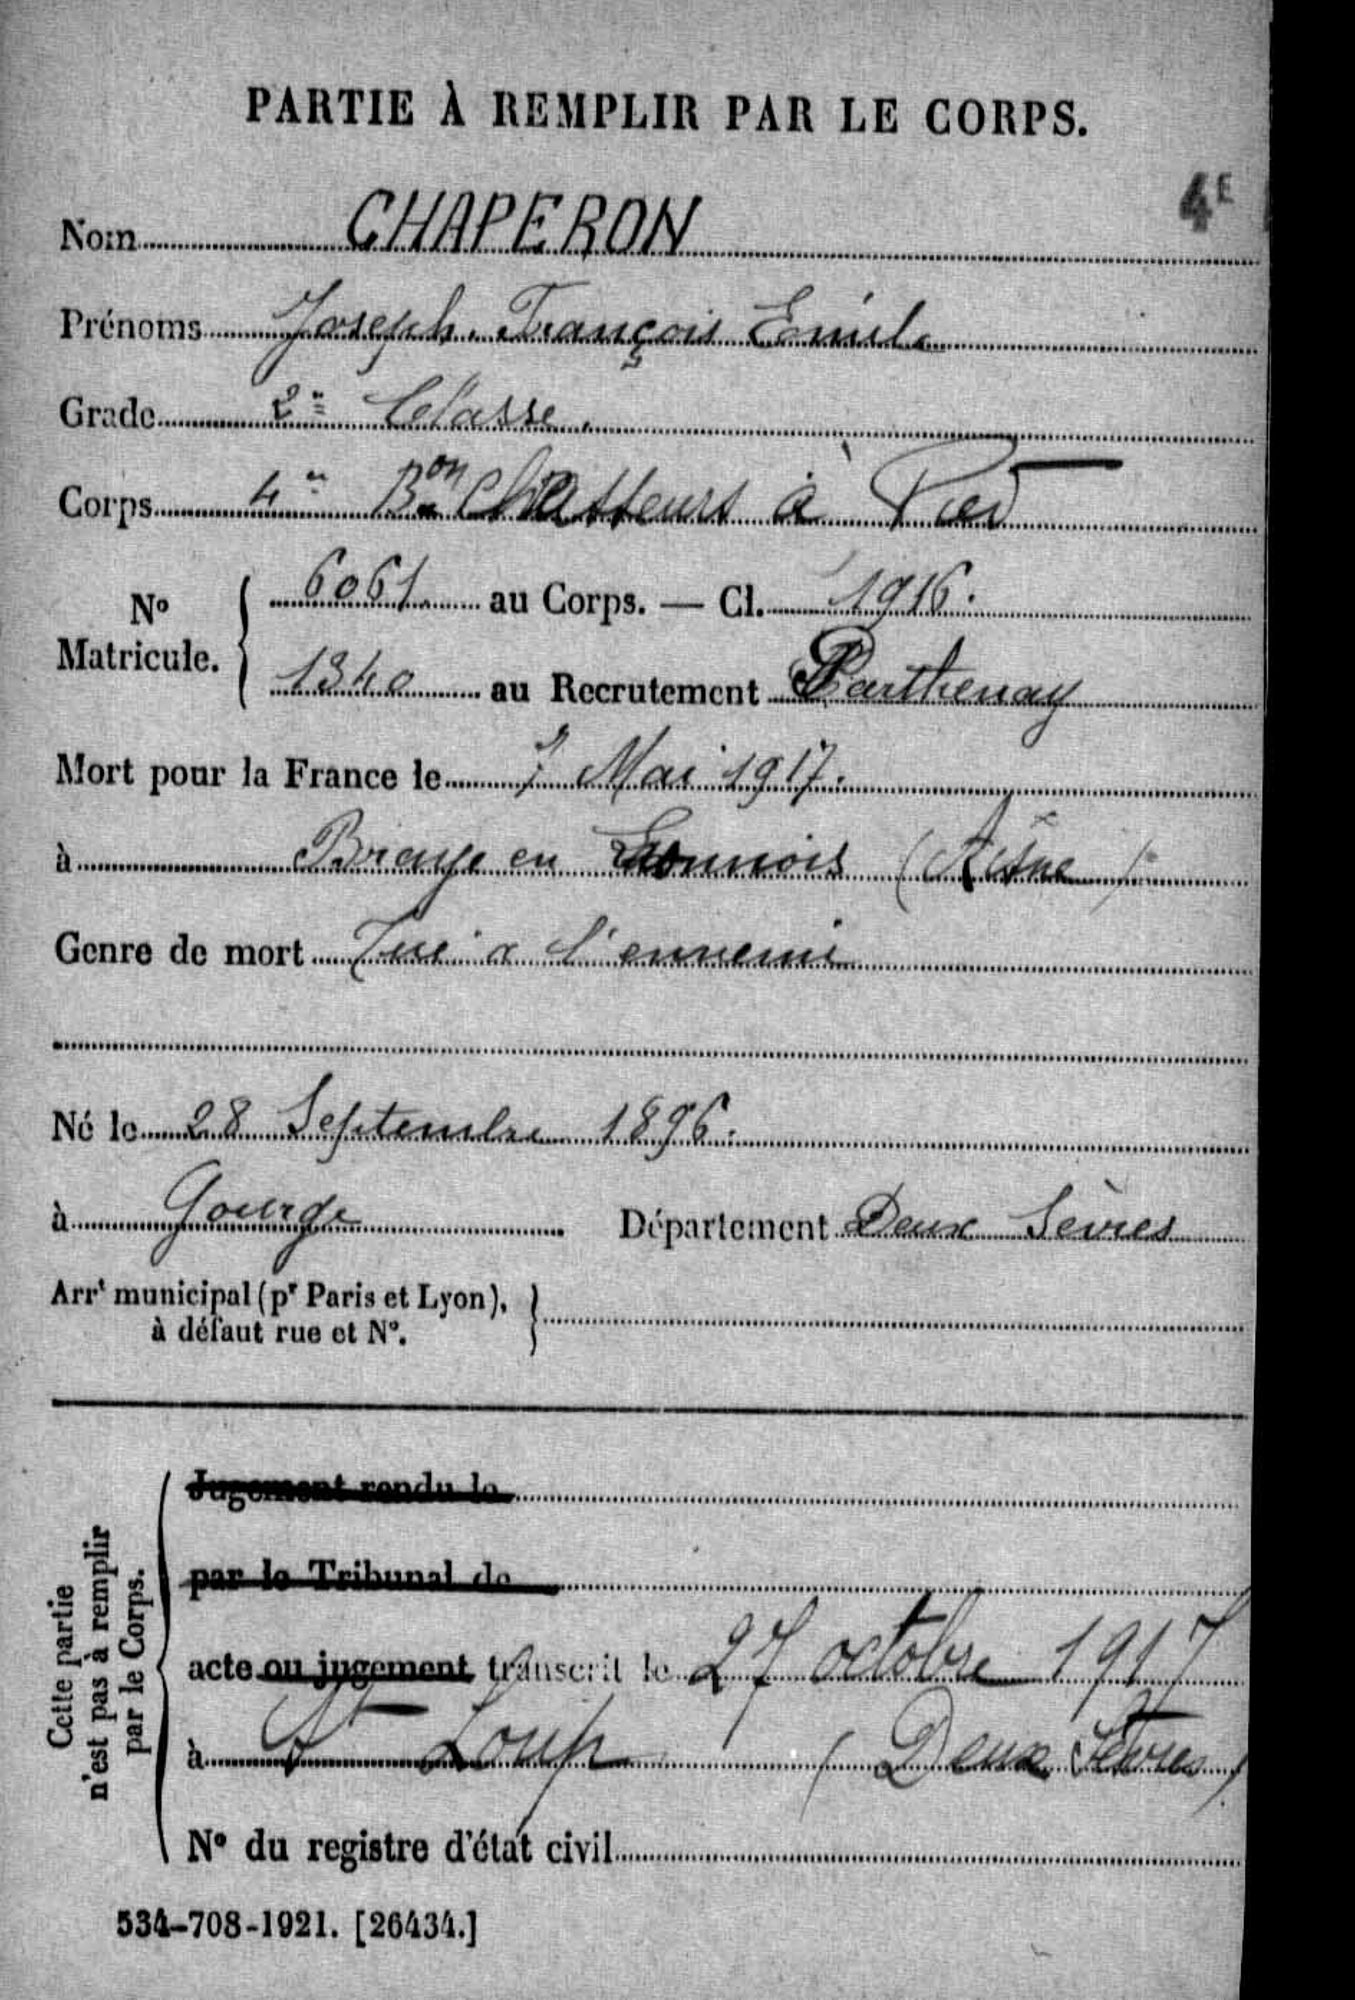 PARTIE À REMPLIR PAR LE CORPS.
4E
Nom CHAPERON
Prénoms Joseph François Emile
Grade 2e Classe.
Corps 4e Bon Chasseurs à Pied
No Matricule. { 6061 au Corps. — Cl. 1916.
1340 au Recrutement Parthenay
Mort pour la France le 7 Mai 1917.
à Braye en Laonnois (Aisne)
Genre de mort Tué à l'ennemi
Né le 28 Septembre 1896.
à Gourgé Département Deux Sèvres
Arrt municipal (pr Paris et Lyon),
à défaut rue et No.
Cette partie
n'est pas à remplir
par le Corps.
Jugement rendu le
par le Tribunal de
acte ou jugement transcrit le 27 octobre 1917
à St Loup (Deux Sèvres)
No du registre d'état civil
534-708-1921. [26434.]